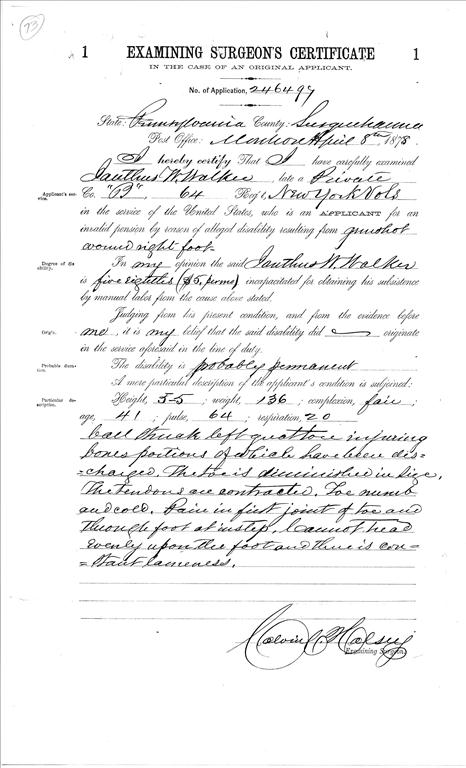 73
1 EXAMINING SURGEON'S CERTIFICATE 1
IN THE CASE OF AN ORIGINAL APPLICANT.
No. of Application, 246497
State: Pennsylvania County: Susquehanna
Post Office: Montrose April 8th, 1878.
I hereby certify That I have carefully examined
Ianthus W. Walker late a Private
Applicant's service. Co. "B", 64 Reg't, New York Vols
in the service of the United States, who is an APPLICANT for an
invalid pension by reason of alleged disability resulting from gunshot
wound right foot
Degree of disability. In my opinion the said Ianthus W. Walker
is five eighths ($5, per mo) incapacitated for obtaining his subsistence
by manual labor from the cause above stated.
Judging from his present condition, and from the evidence before
Origin. me, it is my belief that the said disability did originate
in the service aforesaid in the line of duty.
Probable duration. The disability is probably permanent
A more particular description of the applicant's condition is subjoined:
Particular description. Height, 5-5; weight, 136; complexion, fair;
age, 41; pulse, 64; respiration, 20
ball struck left great toe injuring
bones portions of which have been dis-
=charged. The toe is diminished in size.
The tendons are contracted. Toe numb
and cold. Pain in first joint of toe and
through foot at instep. Cannot tread
evenly upon the foot and there is con-
=stant lameness.
Calvin C. Halsey
Examining Surgeon.